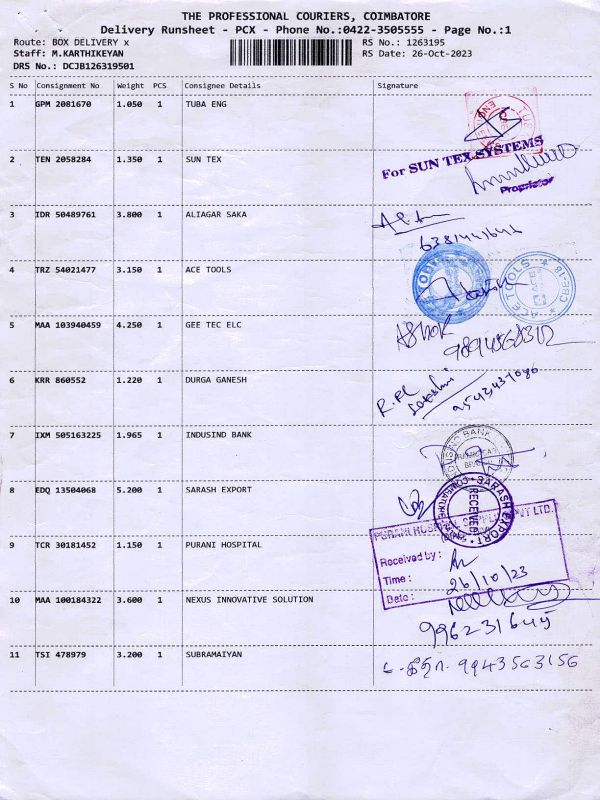 THE PROFESSIONAL COURIERS, COIMBATORE
Delivery Runsheet - PCX - Phone No.:0422-3505555 - Page No.:1
Route: BOX DELIVERY x RS No.: 1263195
Staff: M.KARTHIKEYAN RS Date: 26-Oct-2023
DRS No.: DCJB126319501
S No Consignment No Weight PCS Consignee Details Signature
1 GPM 2081670 1.050 1 TUBA ENG
2 TEN 2058284 1.350 1 SUN TEX
For SUN TEX SYSTEMS
Proprietor
3 IDR 50489761 3.800 1 ALIAGAR SAKA
4 TRZ 54021477 3.150 1 ACE TOOLS
ACE TOOLS * CBE-18 *
5 MAA 103940459 4.250 1 GEE TEC ELC
Ashok
9894868312
6 KRR 860552 1.220 1 DURGA GANESH
7 IXM 505163225 1.965 1 INDUSIND BANK
INDUSIND BANK
8 EDQ 13504068 5.200 1 SARASH EXPORT
SARASH EXPORT
RECEIVED
9 TCR 30181452 1.150 1 PURANI HOSPITAL
PURANI HOSPITAL PVT LTD.
Received by :
Time : 26/10/23
Date :
10 MAA 100184322 3.600 1 NEXUS INNOVATIVE SOLUTION
11 TSI 478979 3.200 1 SUBRAMAIYAN
9943563156